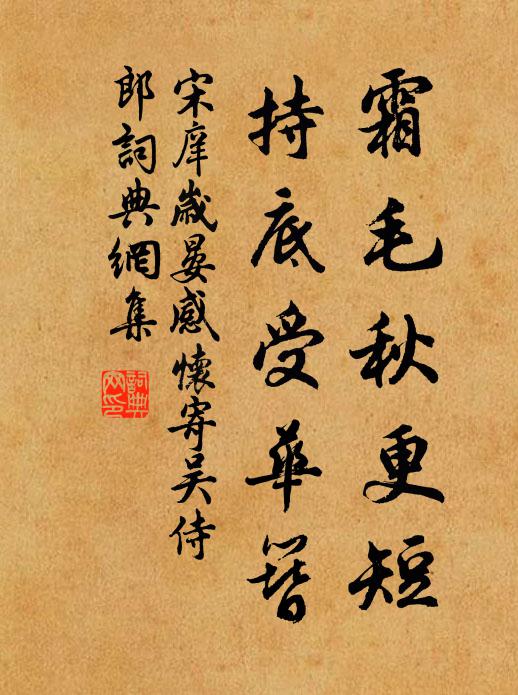 霜毛秋更短
持底受華簪
宋庠歲晏感懷寄吳侍
郎詞典網集
詞典
網印